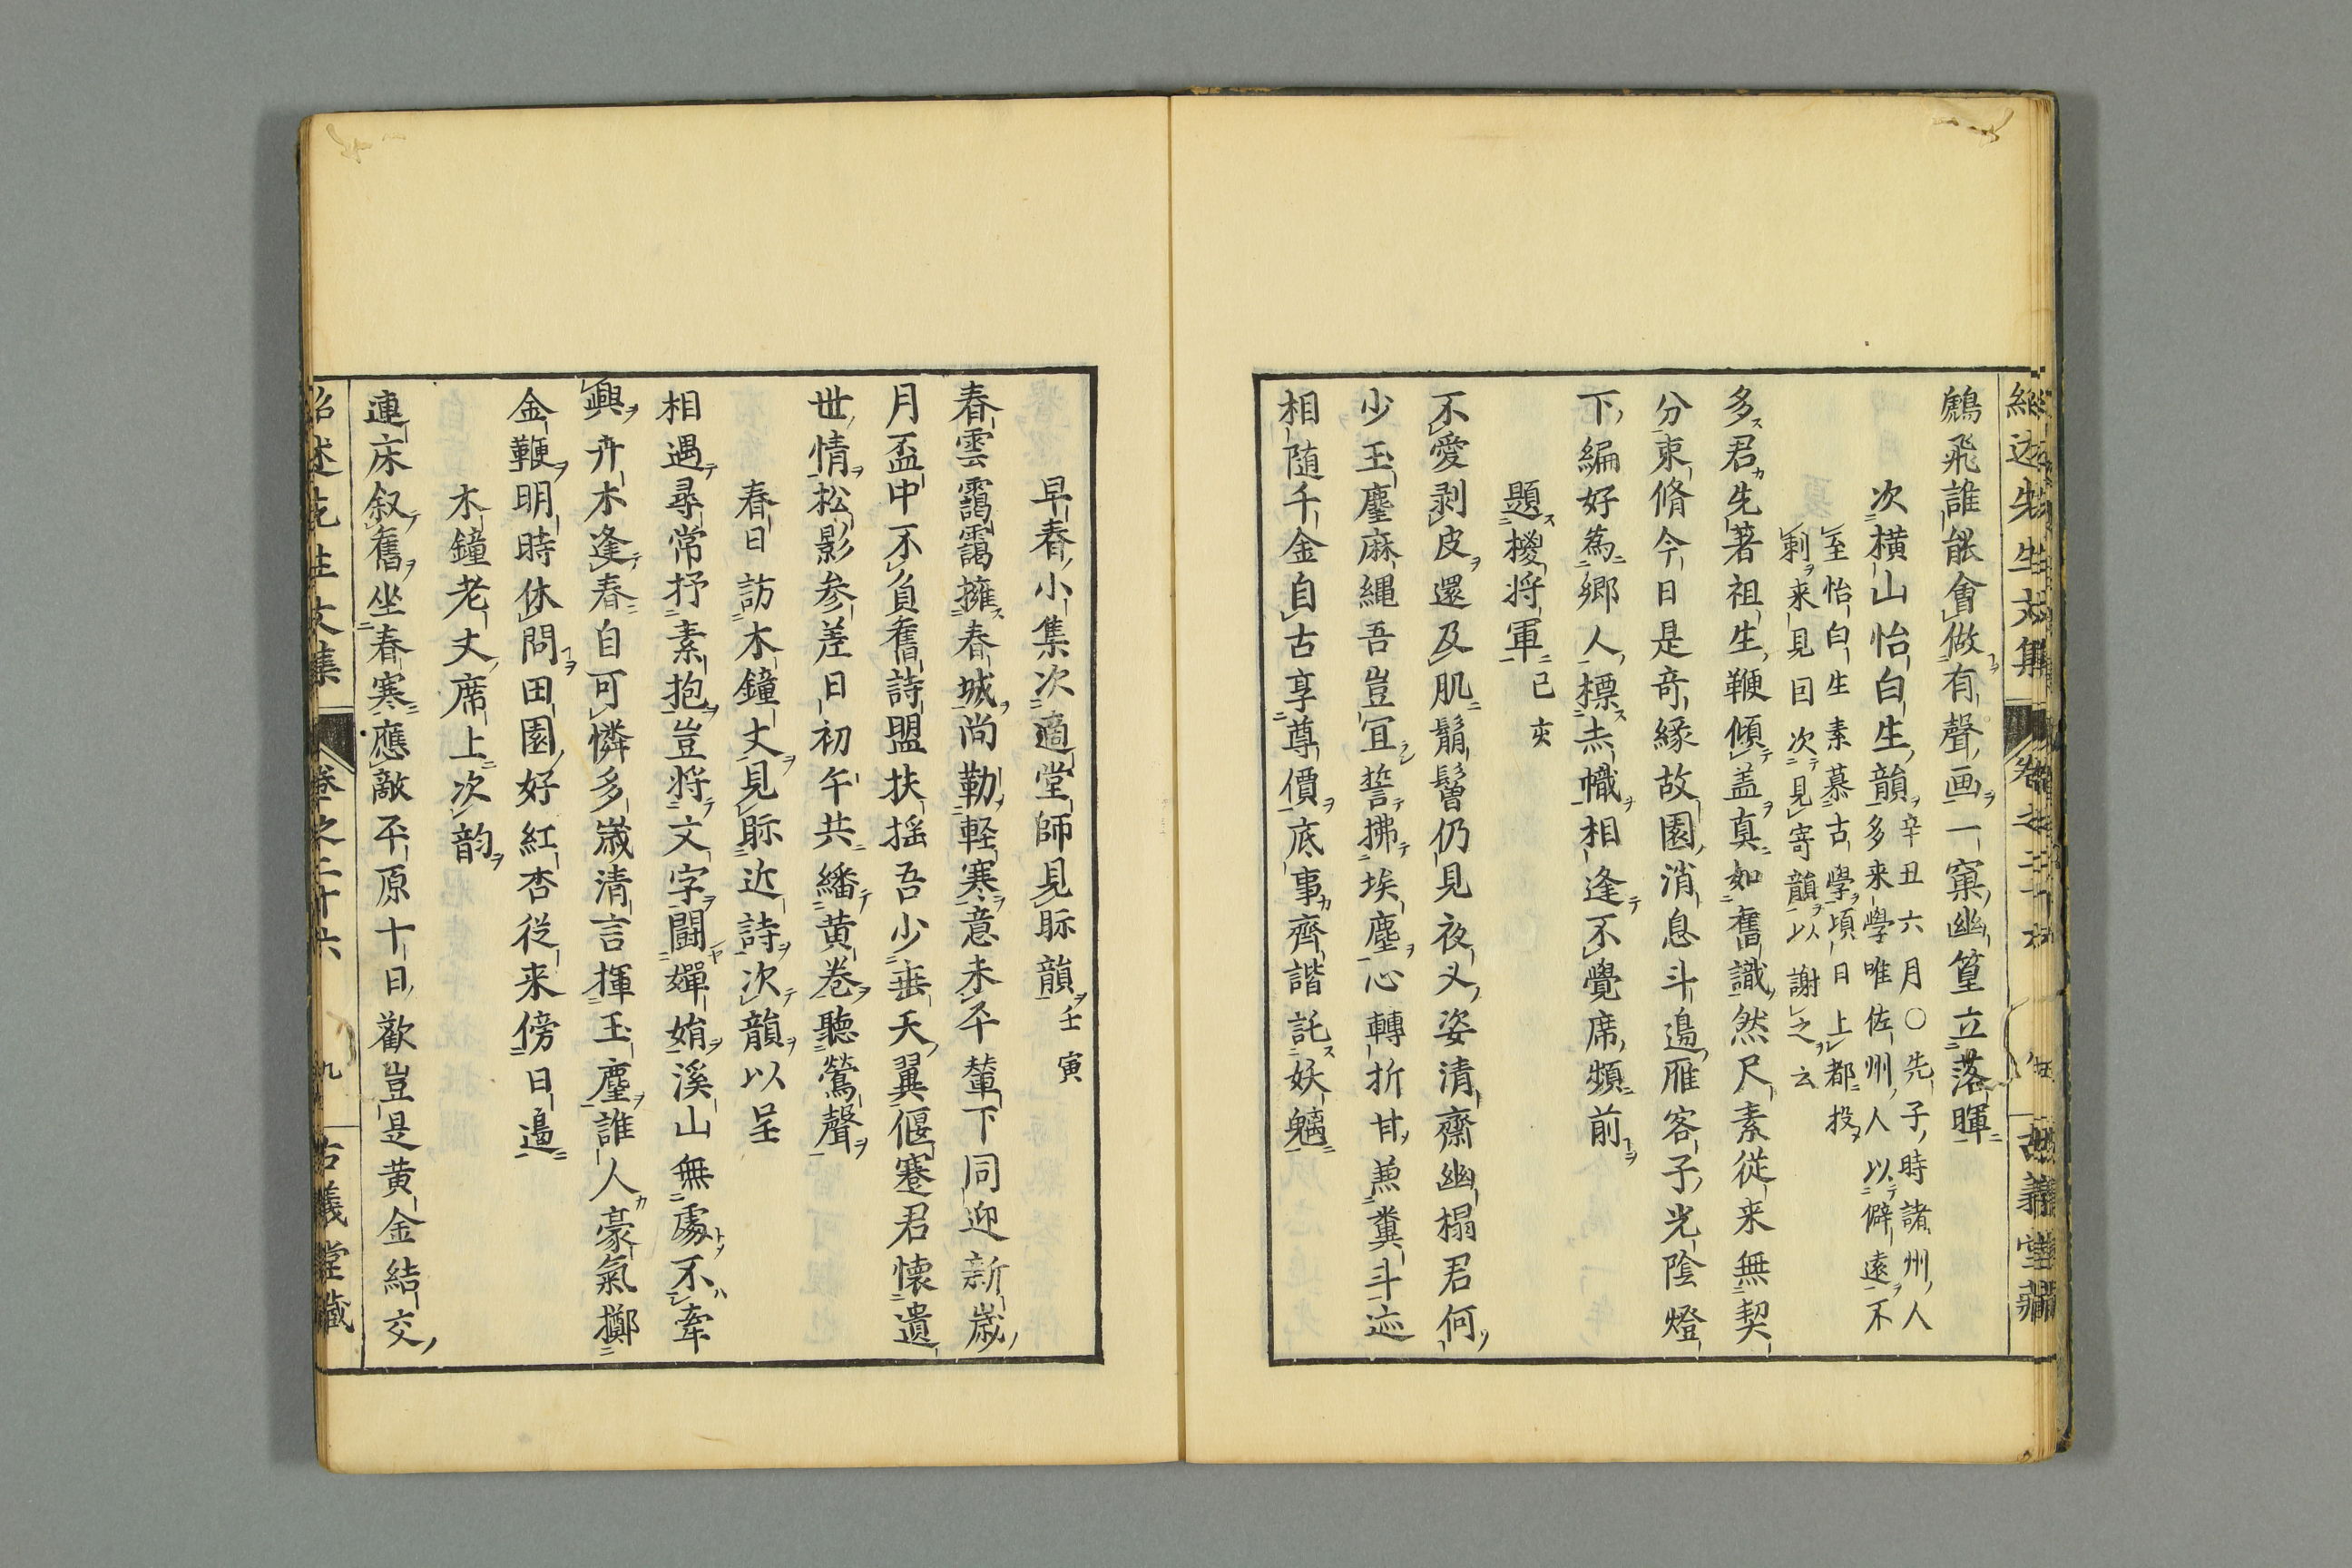 鷓飛誰能會做有聲画一窠幽篁立落暉
次橫山怡白生韻辛丑六月○先子時諸州人
多来學唯佐州人以僻遠不
至怡白生素慕古學頃日上都投
剌来見囙次見寄韻以謝之云
多君先著祖生鞭傾盖真如舊識然尺素從来無契
分束脩今日是奇緣故園消息斗邉雁客子光陰燈
下編好為鄉人標赤幟相逢不覺席頻前
題椶将軍己亥
不愛剥皮還及肌鬅鬙仍見夜叉姿清齋幽榻君何
少玉麈麻縄吾豈冝誓拂埃塵心轉折甘兼糞斗迹
相随千金自古享尊價底事齊諧託妖魑
早春小集次適堂師見眎韻壬寅
春雲靄靄擁春城尚勒軽寒意未平輦下同迎新嵗
月盃中不負舊詩盟扶揺吾少垂天翼偃蹇君懷遺
世情松影参差日初午共繙黄卷聽鶯聲
春日訪木鐘丈見眎近詩次韻以呈
相遇尋常抒素抱豈将文字闘嬋娟溪山無處不牽
興卉木逢春自可憐多嵗清言揮玉麈誰人豪氣擲
金鞭明時休問田園好紅杏從来傍日邉
木鐘老丈席上次韵
連床叙舊坐春寒應敵平原十日歡豈是黄金結交
紹述先生文集 卷之二十六 九 古義堂藏